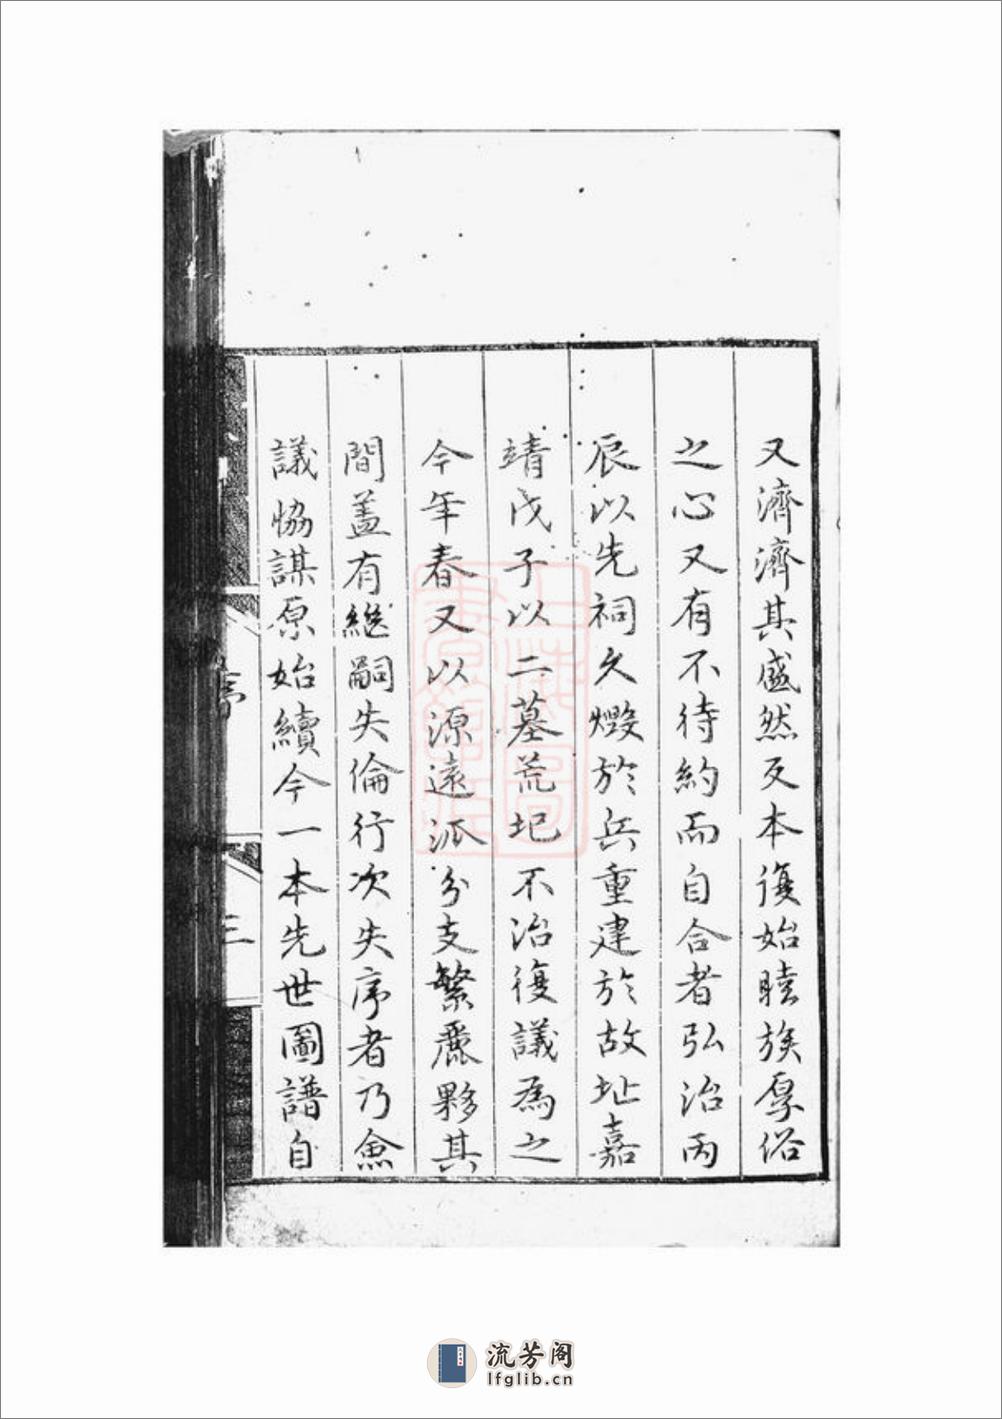 又濟濟其盛然反本復始睦族厚俗
之心又有不待約而自合者弘治丙
辰以先祠久燬於兵重建於故址嘉
靖戊子以二墓荒圮不治復議為之
今年春又以源遠派分支繁麗夥其
間盖有繼嗣失倫行次失序者乃僉
議協謀原始續今一本先世圖譜自
序
三
流芳阁
lfglib.cn